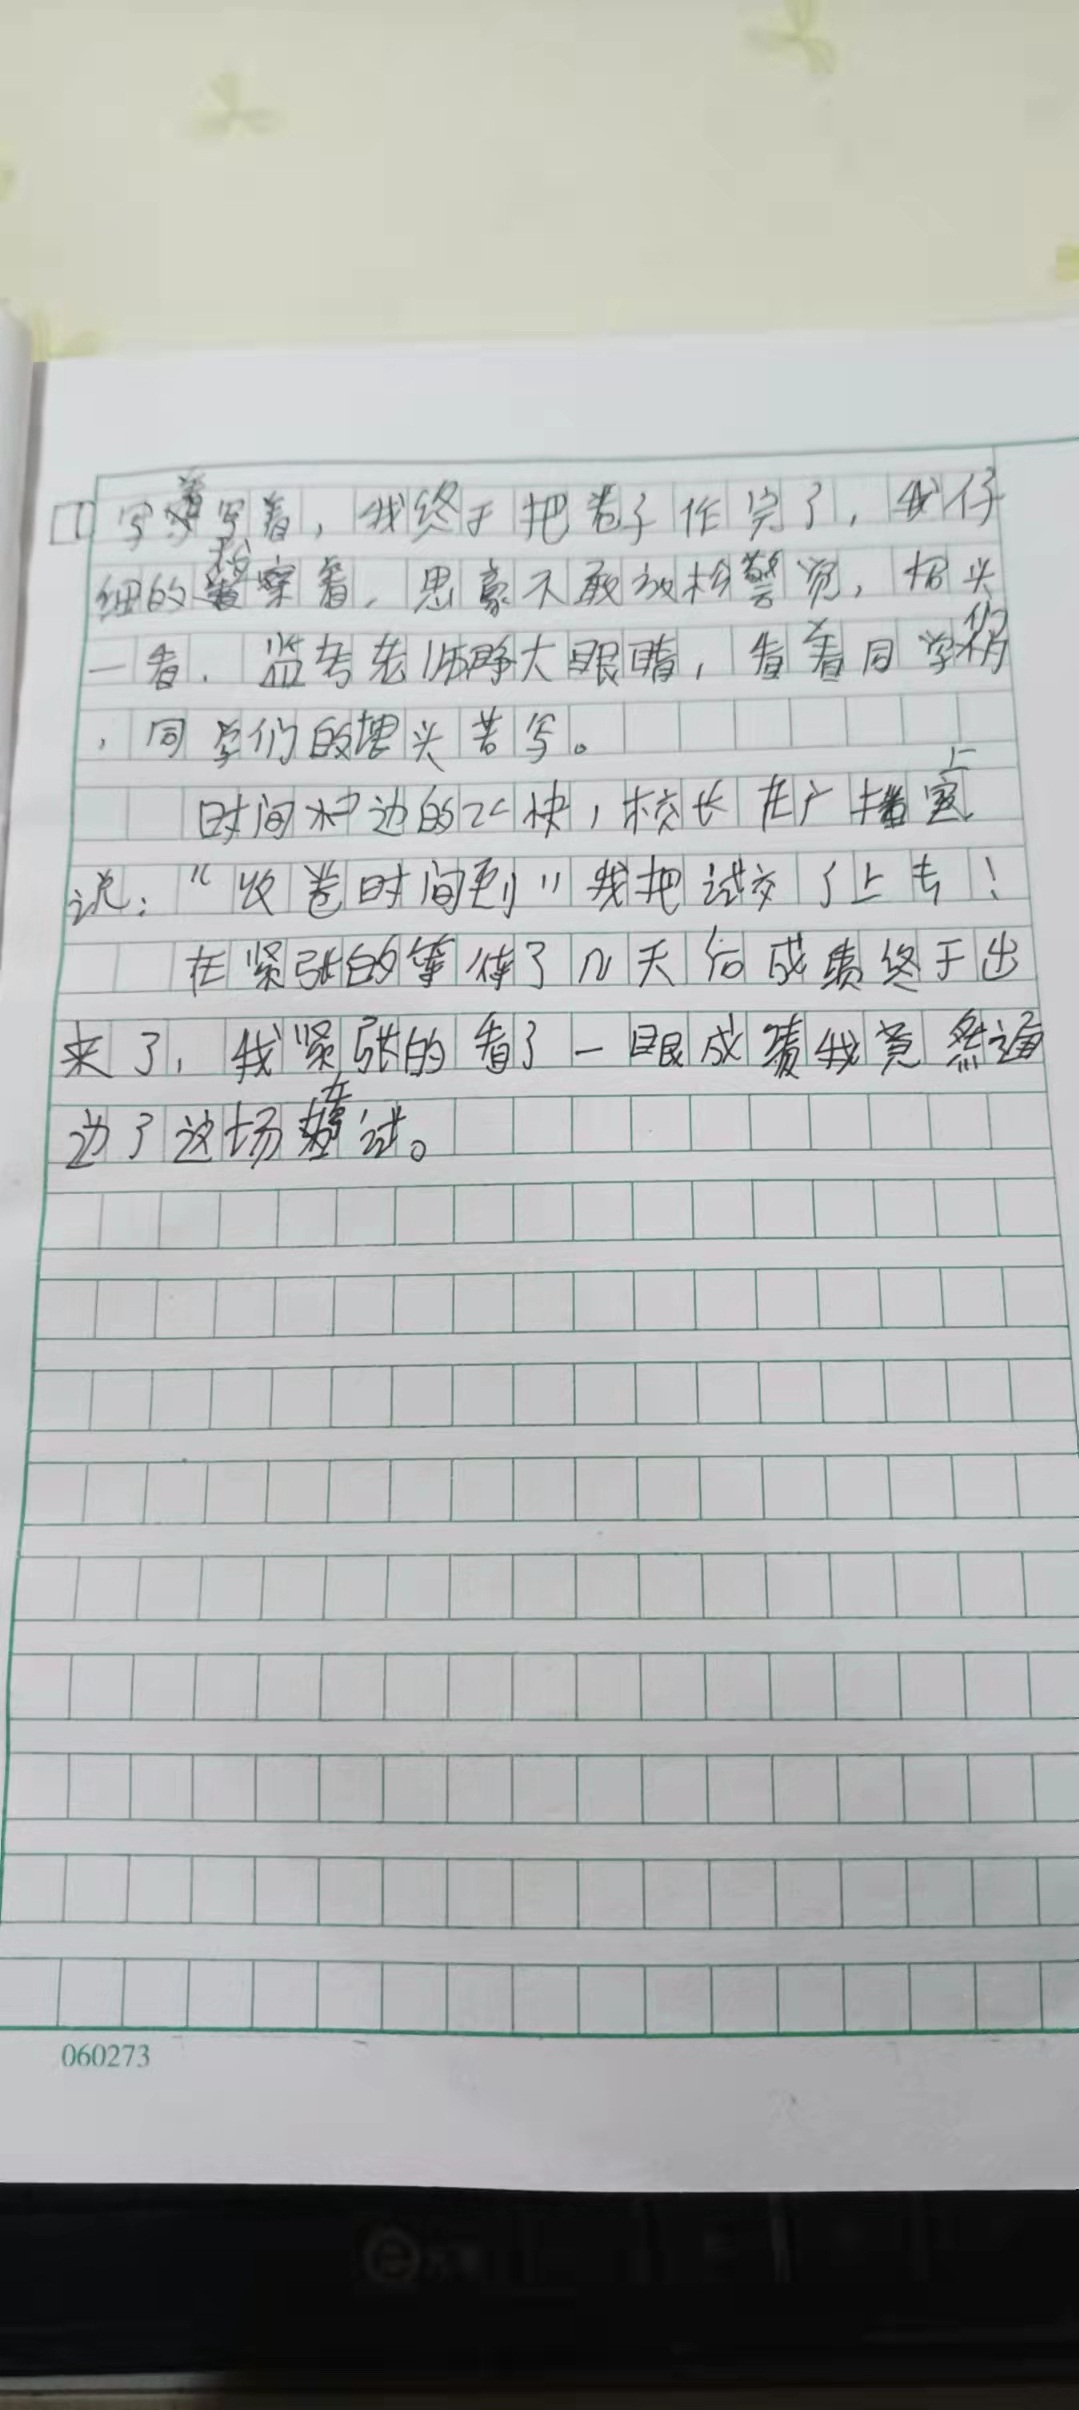 写着写着，我终于把卷子作完了，我仔
细的检察着，思豪不敢放松警觉，抬头
一看，监考老师睁大眼睛，看着同学们
，同学们的埋头苦写。
时间冲边的飞快，校长在广播室上
说：“收卷时间到”我把试交了上去！
在紧张的等待了几天后成责终于出
来了，我紧张的看了一眼成责我竟然通
边了这场考试。
060273